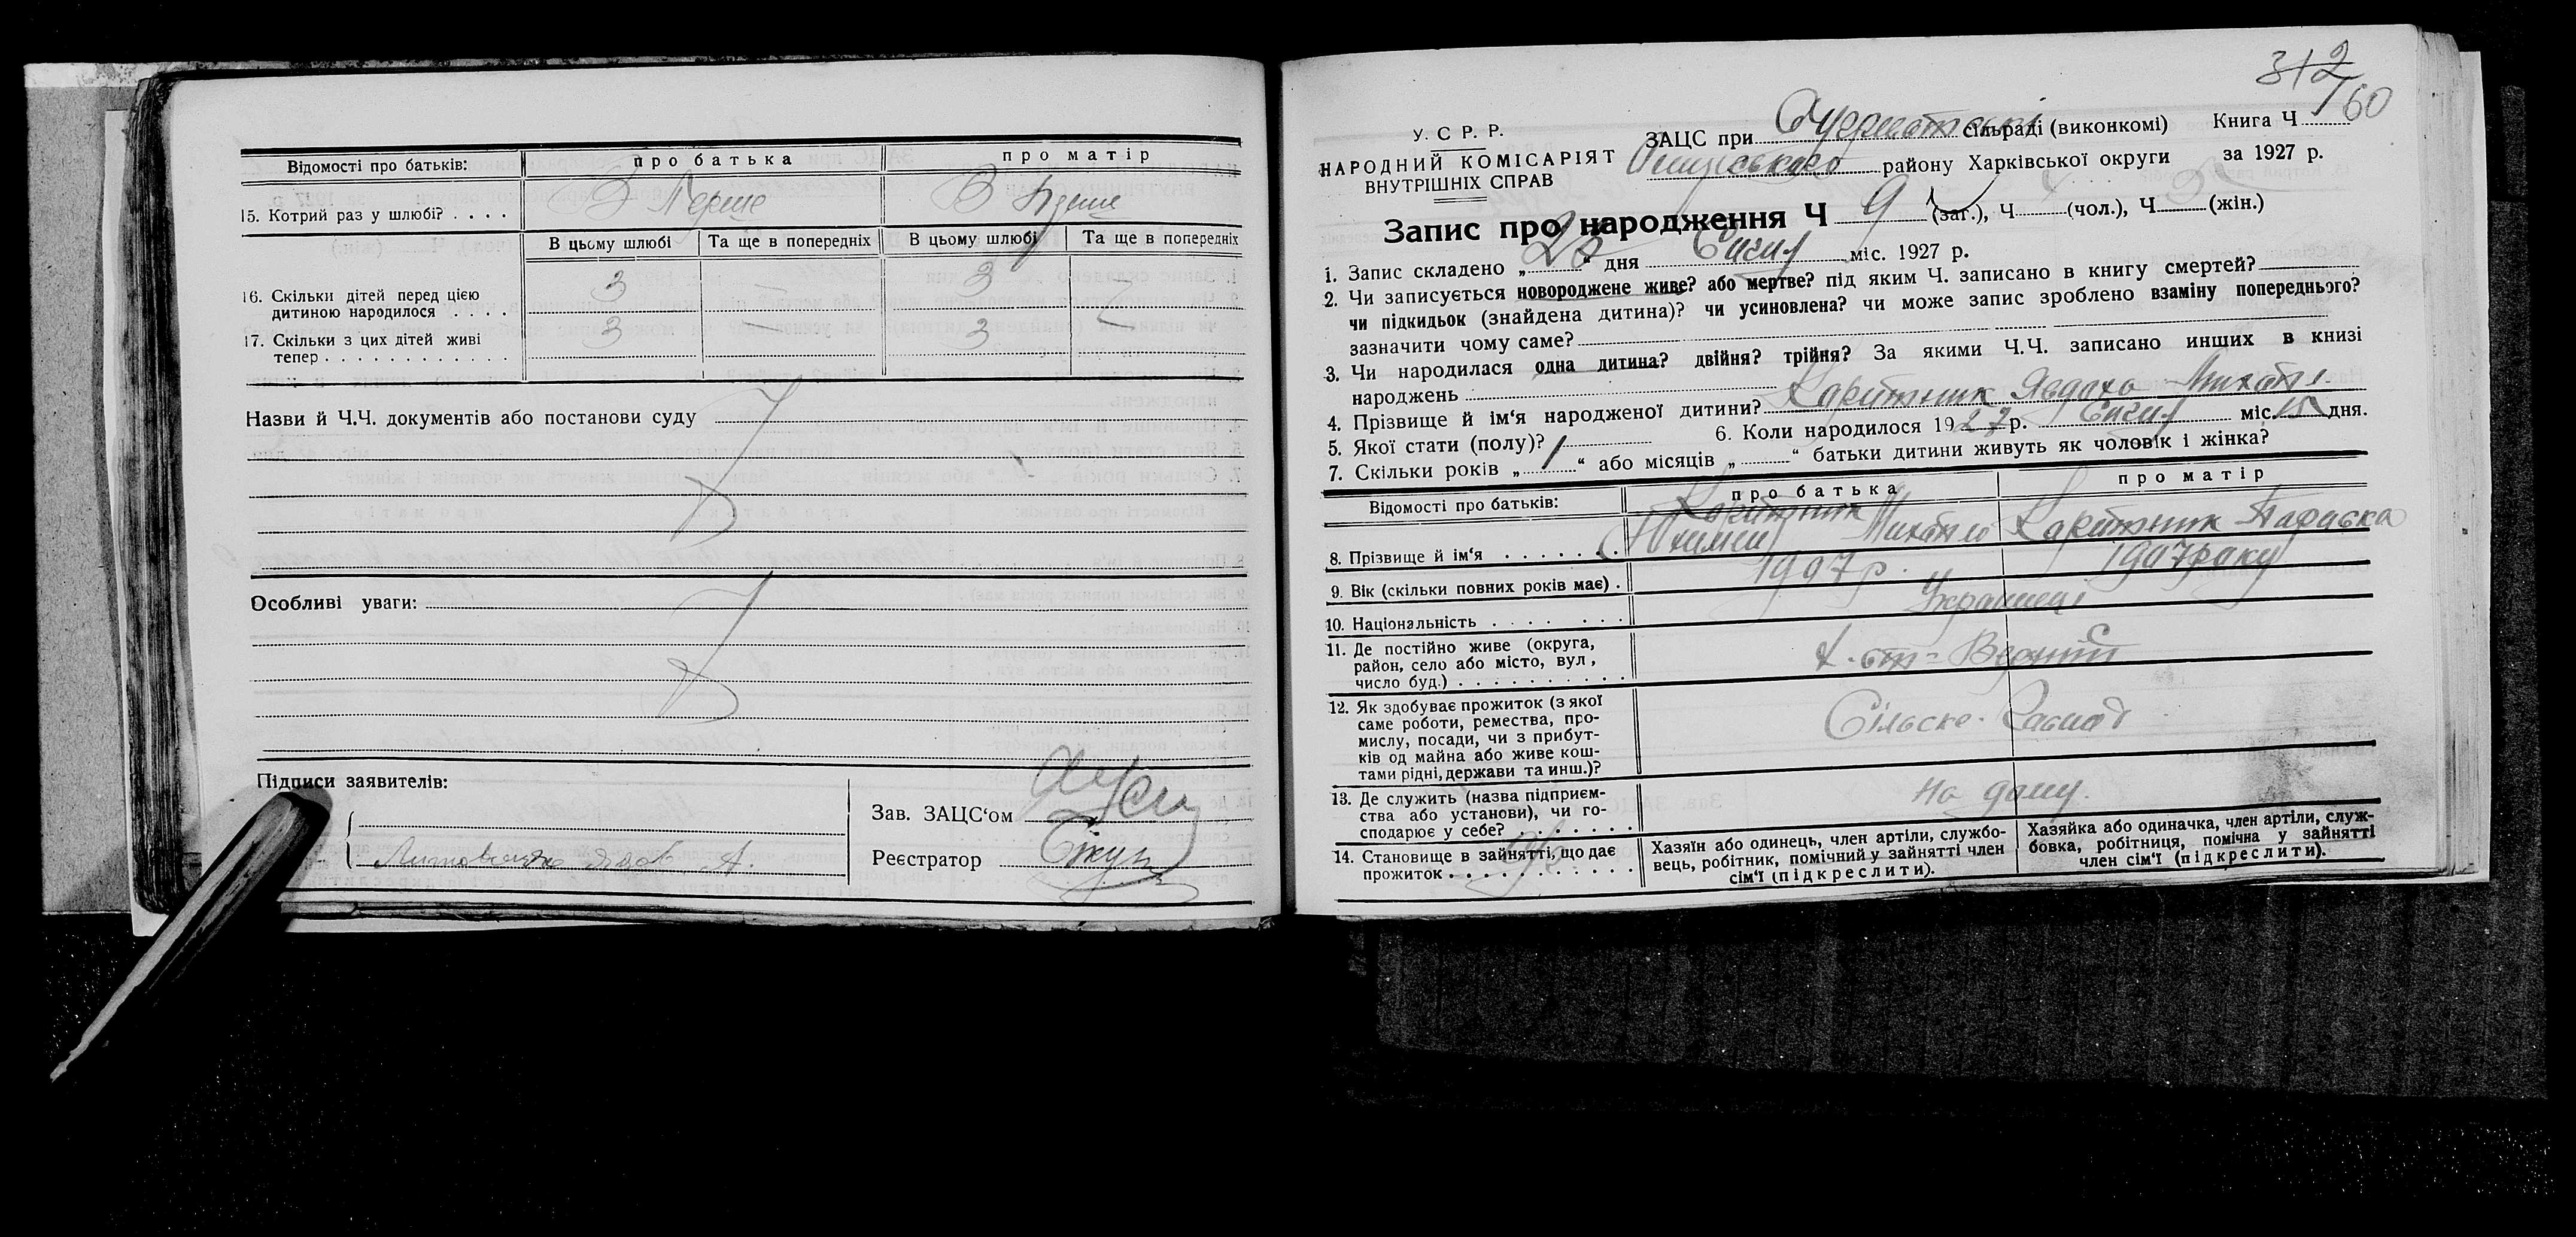 Відомості про батьків: про батька про матір
15. Котрий раз у шлюбі? . . . . В Перше В Перше
В цьому шлюбі Та ще в попередніх В цьому шлюбі Та ще в попередніх
16. Скільки дітей перед цією 3 — 3 —
дитиною народилося . . . .
17. Скільки з цих дітей живі 3 — 3 —
тепер . . . . . . . . . . . .
Назви й Ч.Ч. документів або постанови суду
Особливі уваги:
Підписи заявителів:
Зав. ЗАЦС'ом
Реєстратор
312
/60
У. С. Р. Р.
НАРОДНИЙ КОМІСАРІЯТ
ВНУТРІШНІХ СПРАВ
ЗАЦС при сільраді (виконкомі) Книга Ч
району Харківської округи за 1927 р.
Запис про народження Ч 9 (заг.), Ч (чол.), Ч (жін.)
1. Запис складено „ “ дня Січня міс. 1927 р.
2. Чи записується новороджене живе? або мертве? під яким Ч. записано в книгу смертей?
чи підкидьок (знайдена дитина)? чи усиновлена? чи може запис зроблено взаміну попереднього?
зазначити чому саме?
3. Чи народилася одна дитина? двійня? трійня? За якими Ч.Ч. записано инших в книзі
народжень
4. Прізвище й ім'я народженої дитини? Коритник Явдоха
5. Якої стати (полу)? 6. Коли народилося 1927 р. Січня міс. 15 дня.
7. Скільки років „ “ або місяців „ “ батьки дитини живуть як чоловік і жінка?
Відомості про батьків: про батька про матір
8. Прізвище й ім'я . . . . . . . Коритник Михайло Коритник Параска
9. Вік (скільки повних років має) . 1907 р. 1907 року
10. Національність . . . . . . . Українці
11. Де постійно живе (округа,
район, село або місто, вул,
число буд.) . . . . . . . . . .
12. Як здобуває прожиток (з якої
саме роботи, ремества, про-
мислу, посади, чи з прибут-
ків од майна або живе кош-
тами рідні, держави та инш.)?
Сільске
13. Де служить (назва підприєм-
ства або установи), чи го-
сподарює у себе? . . . . . . .
на дому.
14. Становище в зайнятті, що дає
прожиток . . . . . . . . . . .
Хазяїн або одинець, член артіли, службо-
вець, робітник, помічний у зайнятті член
сім'ї (підкреслити).
Хазяйка або одиначка, член артіли, служ-
бовка, робітниця, помічна у зайнятті
член сім'ї (підкреслити).